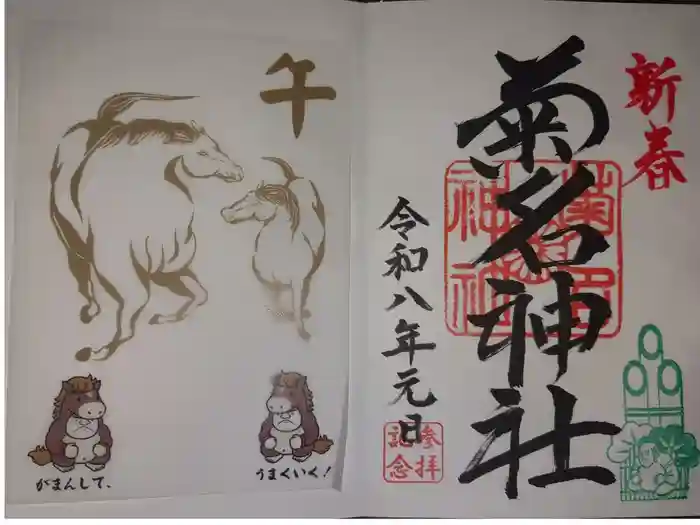 新春
菊名神社
菊名
神社
令和八年元日
参拝
記念
午
がまんして、
うまくいく!